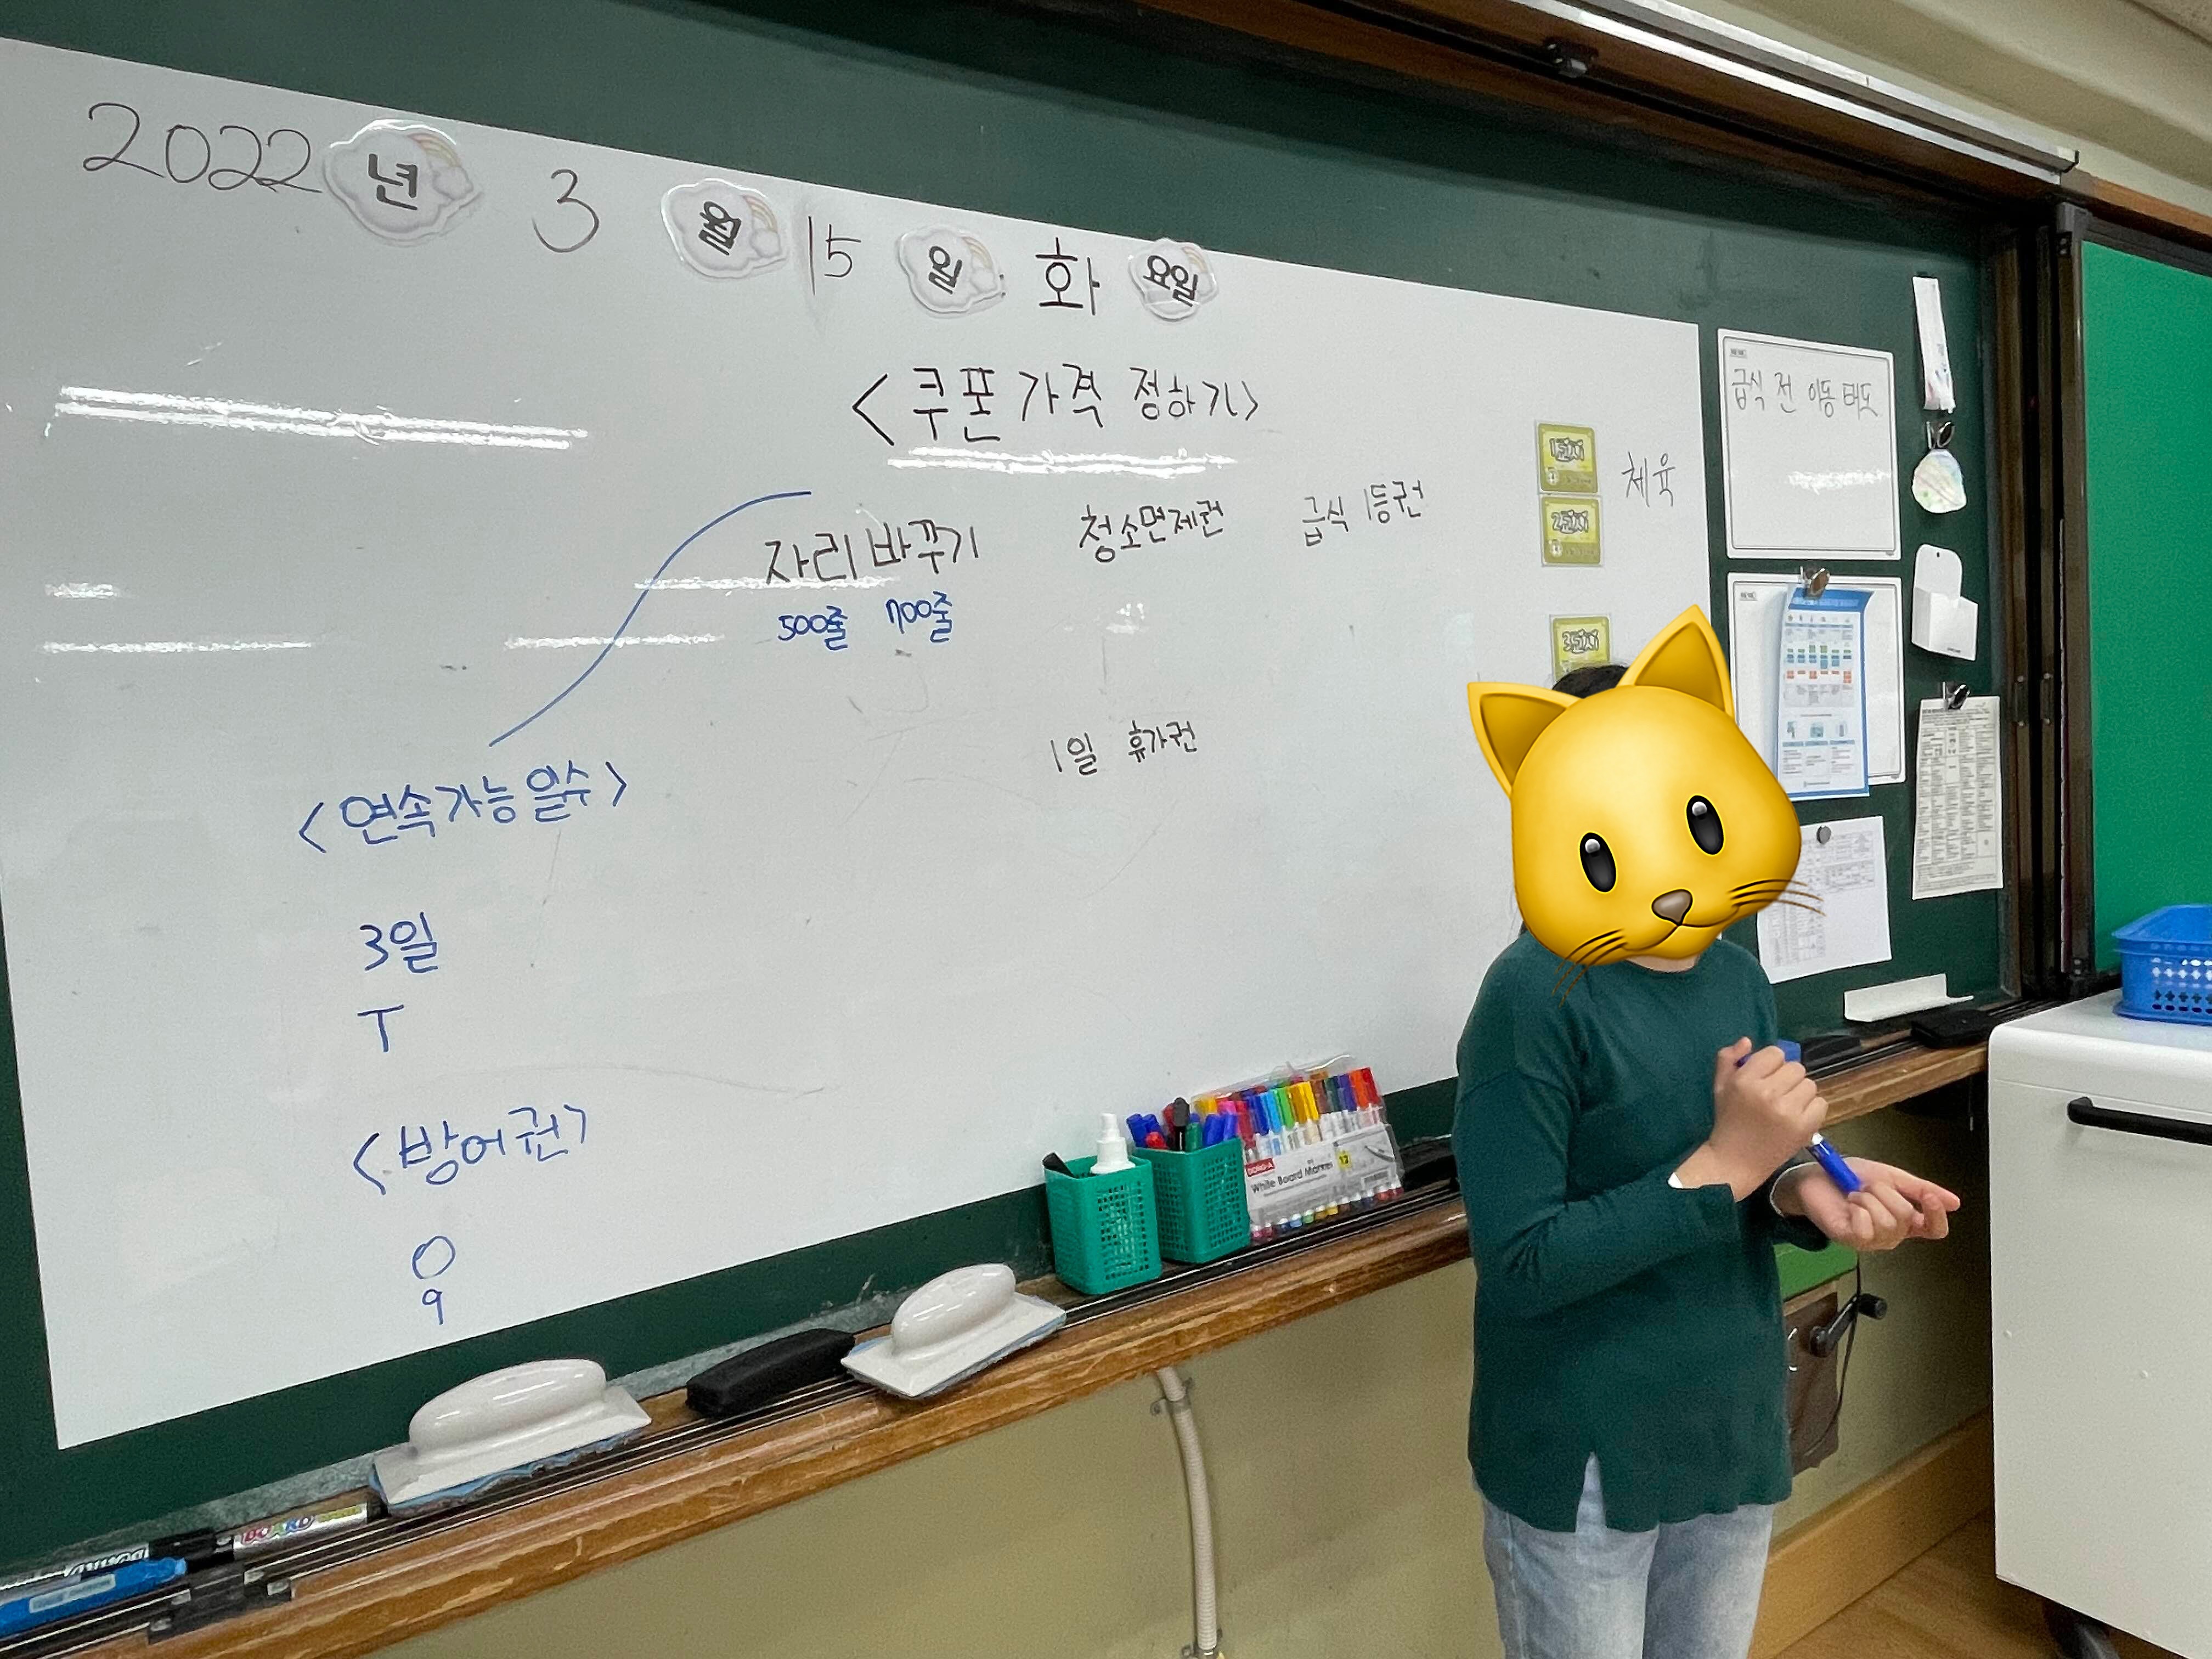 2022 년 3 월 15 일 화 요일
<쿠폰 가격 정하기>
자리 바꾸기 청소면제권 급식 1등권
500줄 700줄
1일 휴가권
<연속 가능 일수>
3일
T
<방어권>
0
9
1교시
체육
2교시
3교시
급식 전 이동 태도
DONG-A
White Board Marker
12
BOARD